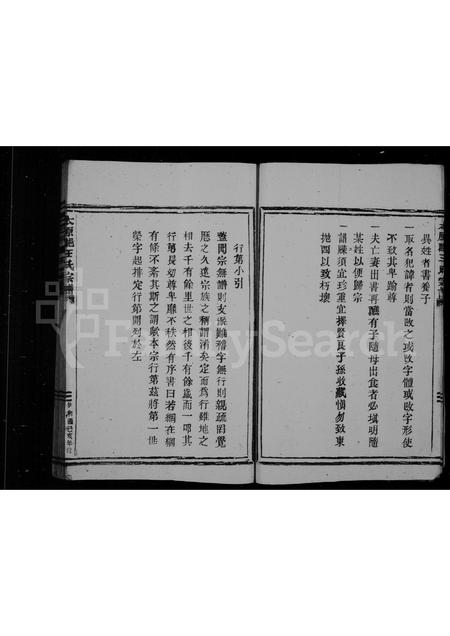 異姓者書養子
一取名犯諱者則當改之或改字體或改字形使
不致其卑踰尊
一夫亡妻出書再醮有子隨母出食者必塡明隨
某姓以便歸宗
一譜牒須宜珍重宜擇賢良子孫收藏愼勿致東
拋西以致朽壞
行第小引
蓋聞宗無譜則支派難稽字無行則親疏罔覺
歷之久遠宗族之稱謂淆矣定而爲行雖地之
相去千有餘里世之相後千有餘歲而一呼其
行第長幼尊卑靡不秩然有序書曰若網在綱
有條不紊其斯之謂歟本宗行第茲將第一世
榮字起排定行第開列於左
太原郡王氏宗譜
民國己亥年
FamilySearch